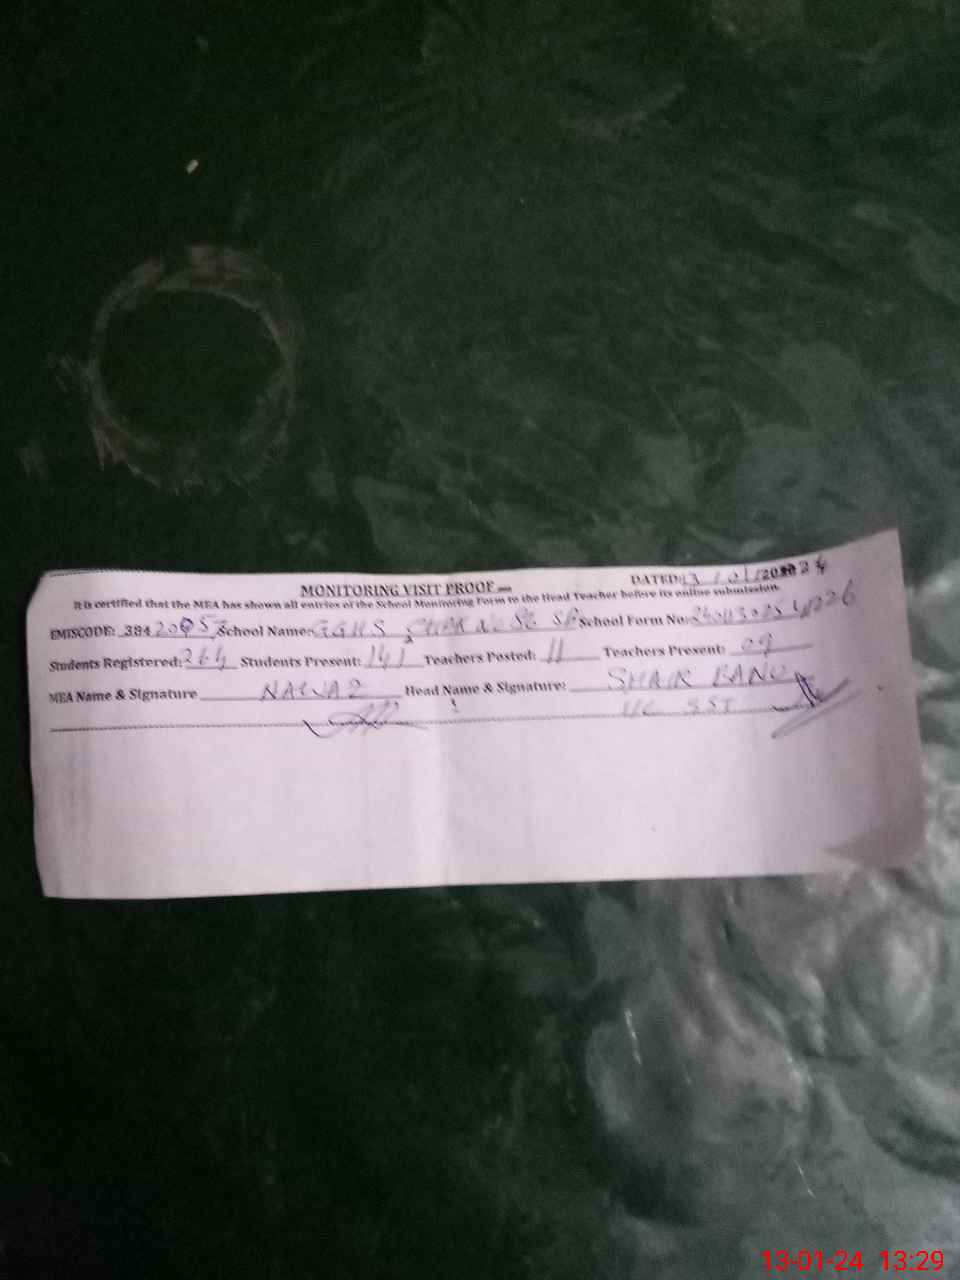 MONITORING VISIT PROOF
DATED: 13 / 01 / 2024
It is certified that the MEA has shown all entries of the School Monitoring Form to the Head Teacher before its online submission.
EMISCODE: 38420057 School Name: GGHS School Form No:
Students Registered: 264 Students Present: 141 Teachers Posted: 11 Teachers Present: 09
MEA Name & Signature NAWAZ Head Name & Signature: SHAIR BANO
SST
13-01-24 13:29